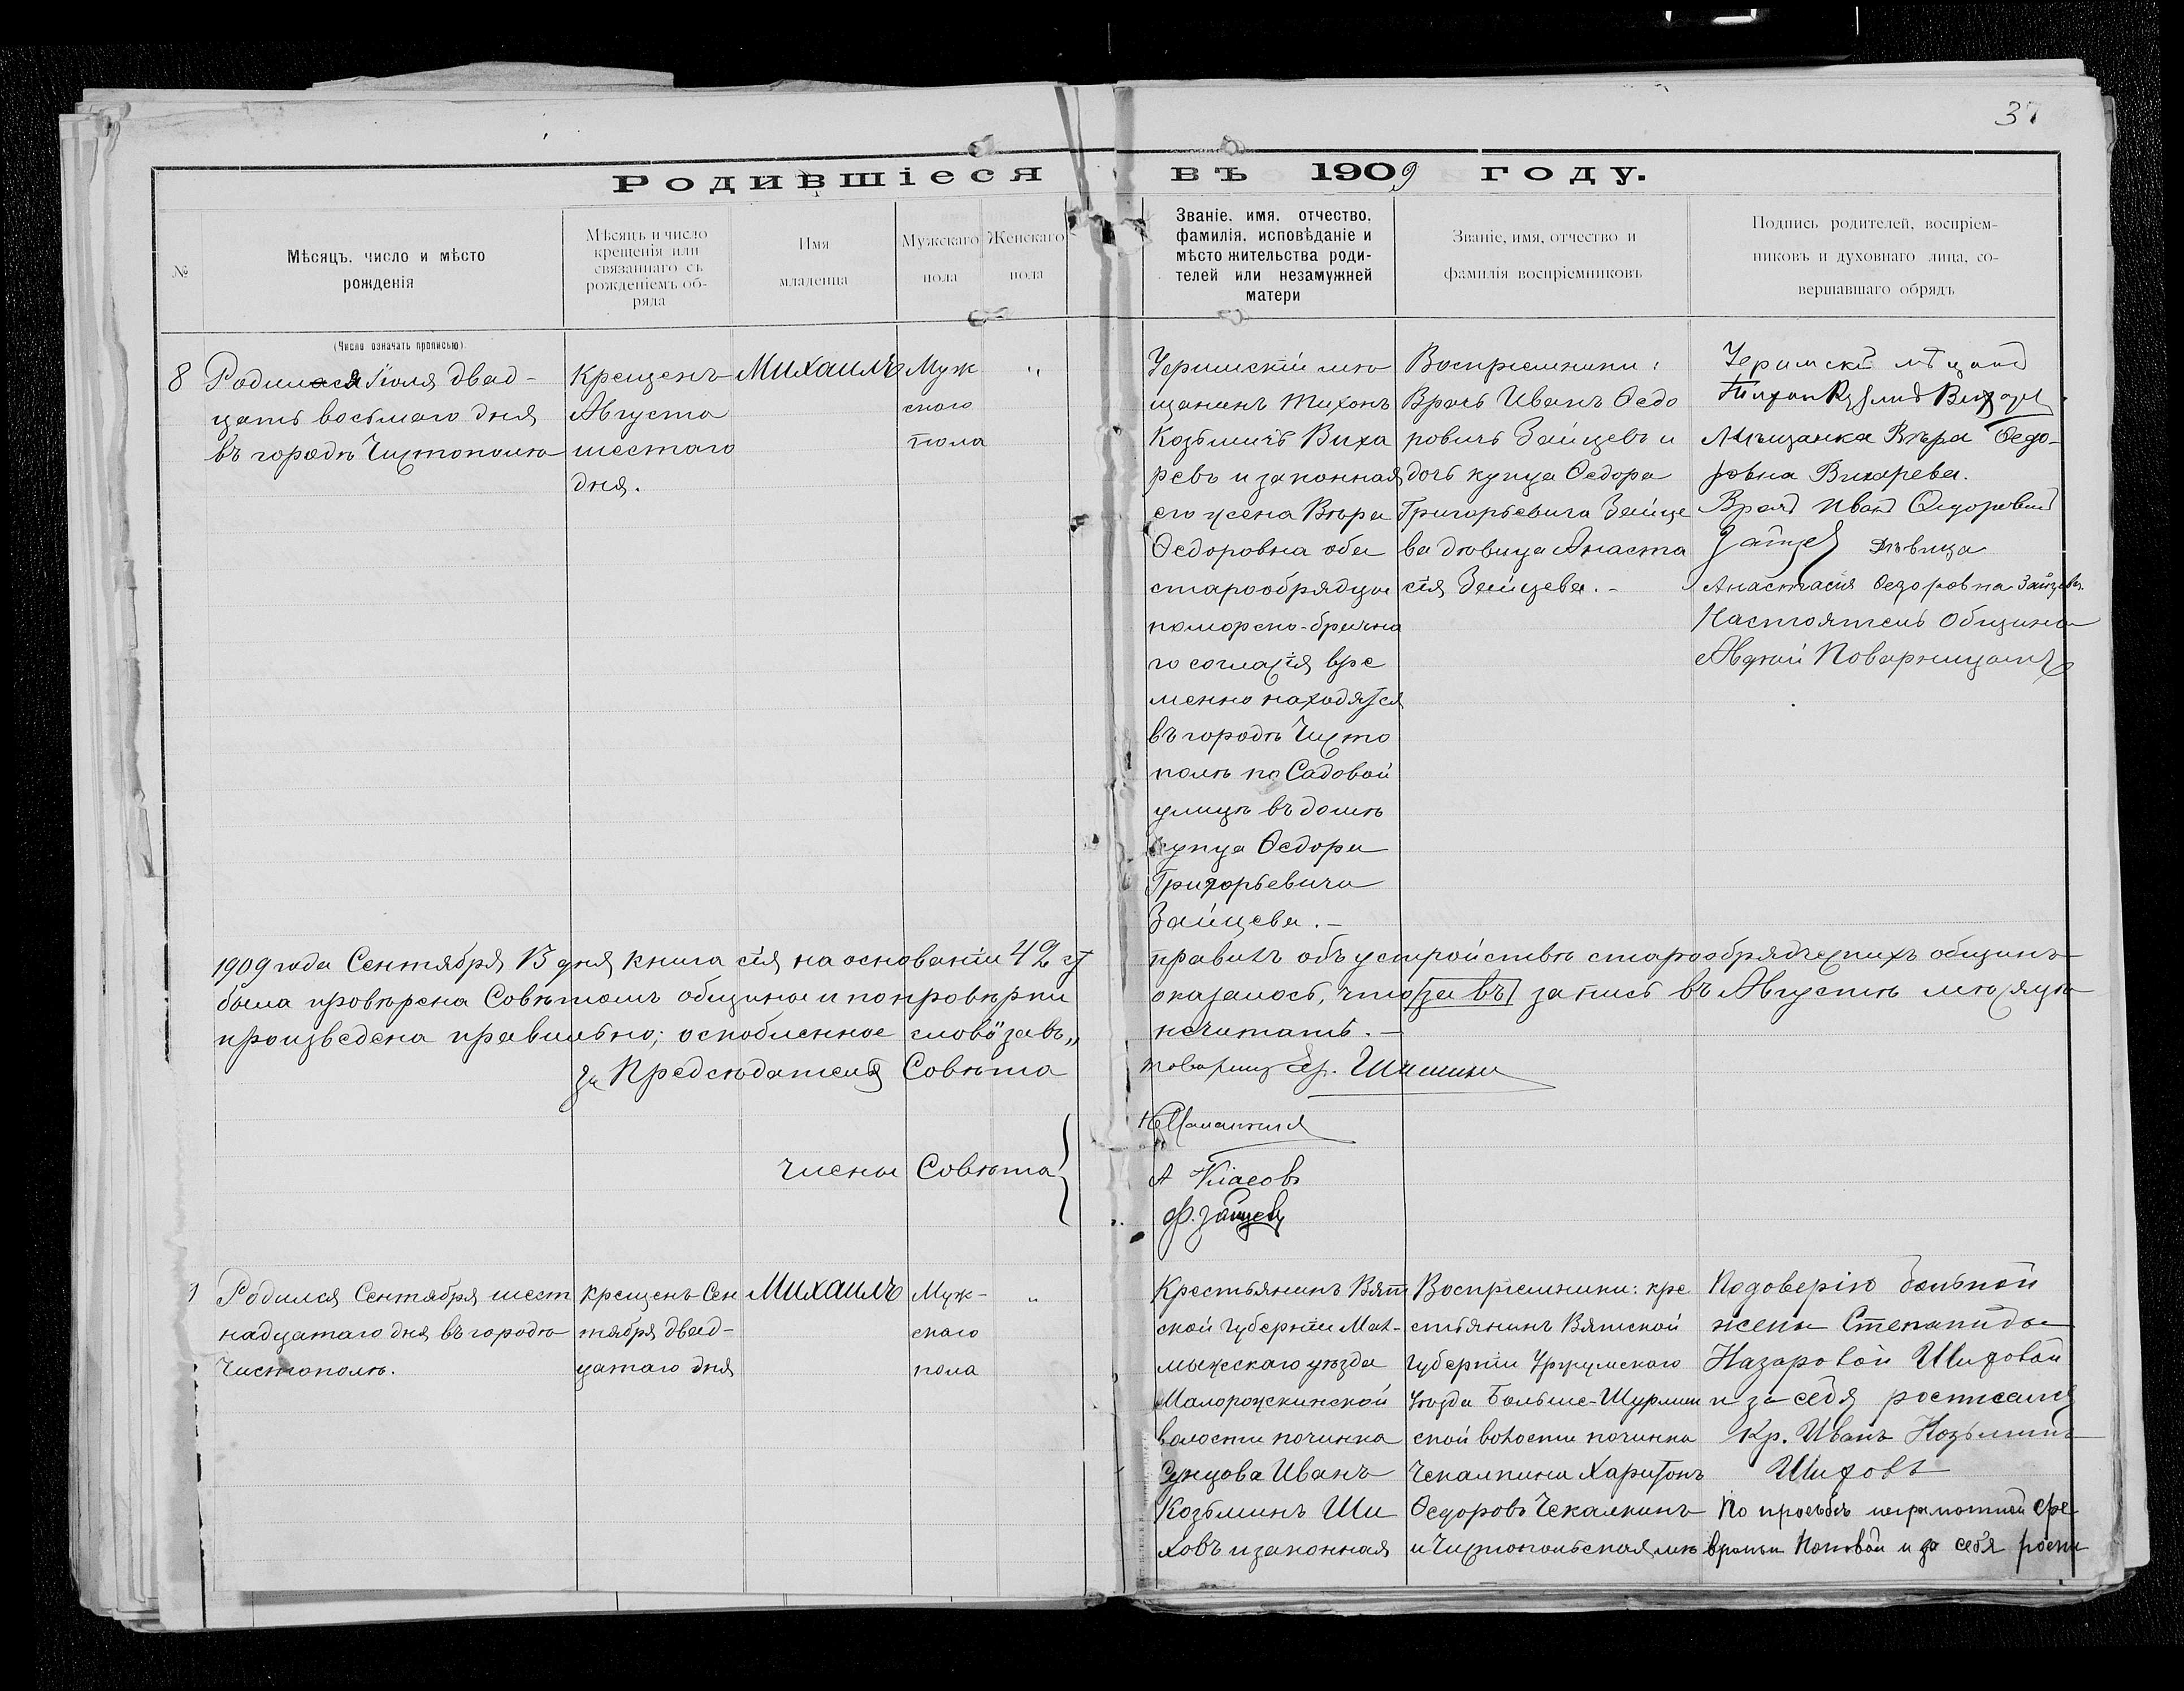 37
Родившіеся въ 1909 году.
№
Мѣсяцъ, число и мѣсто
рожденія
Мѣсяцъ и число
крещенія или
связаннаго съ
рожденіемъ об-
ряда
Имя
младенца
Мужскаго
пола
Женскаго
пола
Званіе, имя, отчество,
фамилія, исповѣданіе и
мѣсто жительства роди-
телей или незамужней
матери
Званіе, имя, отчество и
фамилія воспріемниковъ
Подпись родителей, воспріем-
никовъ и духовнаго лица, со-
вершавшаго обрядъ
(Число означать прописью)
8
Родился Іюля двад-
цать восьмаго дня
въ городѣ Чистополѣ
Крещенъ
Августа
шестаго
дня.
Михаилъ
Муж
скаго
пола
"
мѣ
щанинъ Тихонъ
Козьмичъ Виха
ревъ и законная
его жена Вѣра
Ѳедоровна оба
старообрядцы
поморско-брачна
го согласія вре
менно находятся
въ городѣ Чисто
полѣ по Садовой
улицѣ въ домѣ
купца Ѳедора
Григорьевича
Зайцева.-
Воспріемники:
Врачъ Иванъ Ѳедо
ровичъ Зайцевъ и
дочь купца Ѳедора
Григорьевича Зайце
ва дѣвица Анаста
сія Зайцева.-
Мѣщанка Вѣра Ѳедо-
ровна Вихарева.
Врачъ Иванъ Ѳедоровичъ
Зайцев дѣвица
Анастасія Ѳедоровна Зайцева.
Настоятель общины
Авдкій Поварницынъ
1909 года Сентября 13 дня книга сія на основаніи 42 ст
правилъ объ устройствѣ старообрядческихъ общинъ
была провѣрена Совѣтомъ общины и по провѣрки
оказалось, что [за въ] запись въ Августѣ мѣсяцѣ
произведена правильно; оскобленное слово "за въ"
нечитать.-
За Предсѣдателя Совѣта
товарищ Ст. Шашин
Члены Совѣта
А Класовъ
Ф. Зайцевъ
Родился Сентября шест
надцатаго дня въ городѣ
Чистополѣ.
крещенъ Сен
тября двад-
цатаго дня
Михаилъ
Муж-
скаго
пола
"
Крестьянинъ Вят
ской губерніи Мал-
мыжскаго уѣзда
Малорожкинской
волости починка
Сунцова Иванъ
Козьминъ Ши
ховъ и законная
Воспріемники: кре
стьянинъ Вятской
губерніи Уржумскаго
уѣзда Больше-Шурмин
ской волости починка
Чекалкина Харитонъ
Ѳедоровъ Чекалкинъ
и Чистопольская мѣ
По довѣрію больной
жены Степаниды
Назаровой Шиховой
и за себя росписался
Кр. Иванъ Козьминъ
Шиховъ
По просьбѣ неграмотной Фе
вроньи Котовой и за себя роспи